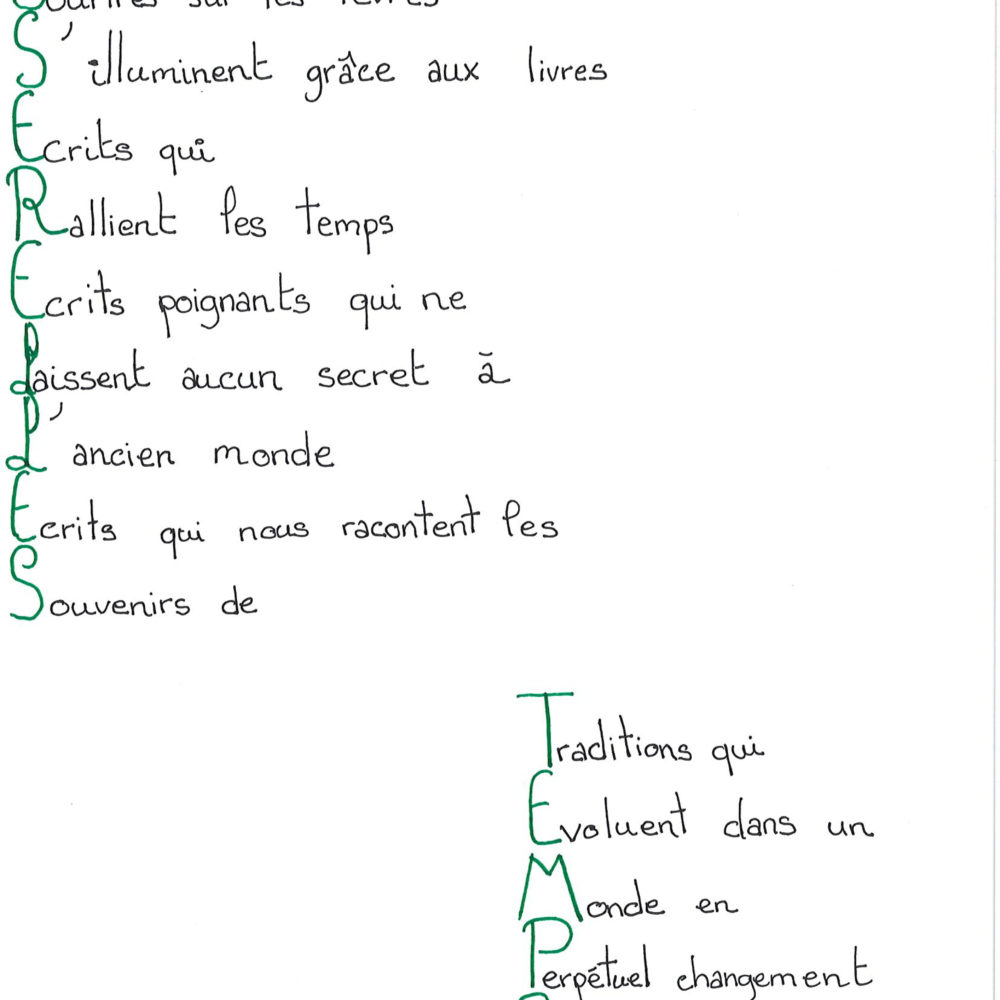 Sourires sur les lèvres
S'illuminent grâce aux livres
Ecrits qui
Rallient les temps
Ecrits poignants qui ne
Laissent aucun secret à
L'ancien monde
Ecrits qui nous racontent les
Souvenirs de
Traditions qui
Evoluent dans un
Monde en
Perpétuel changement